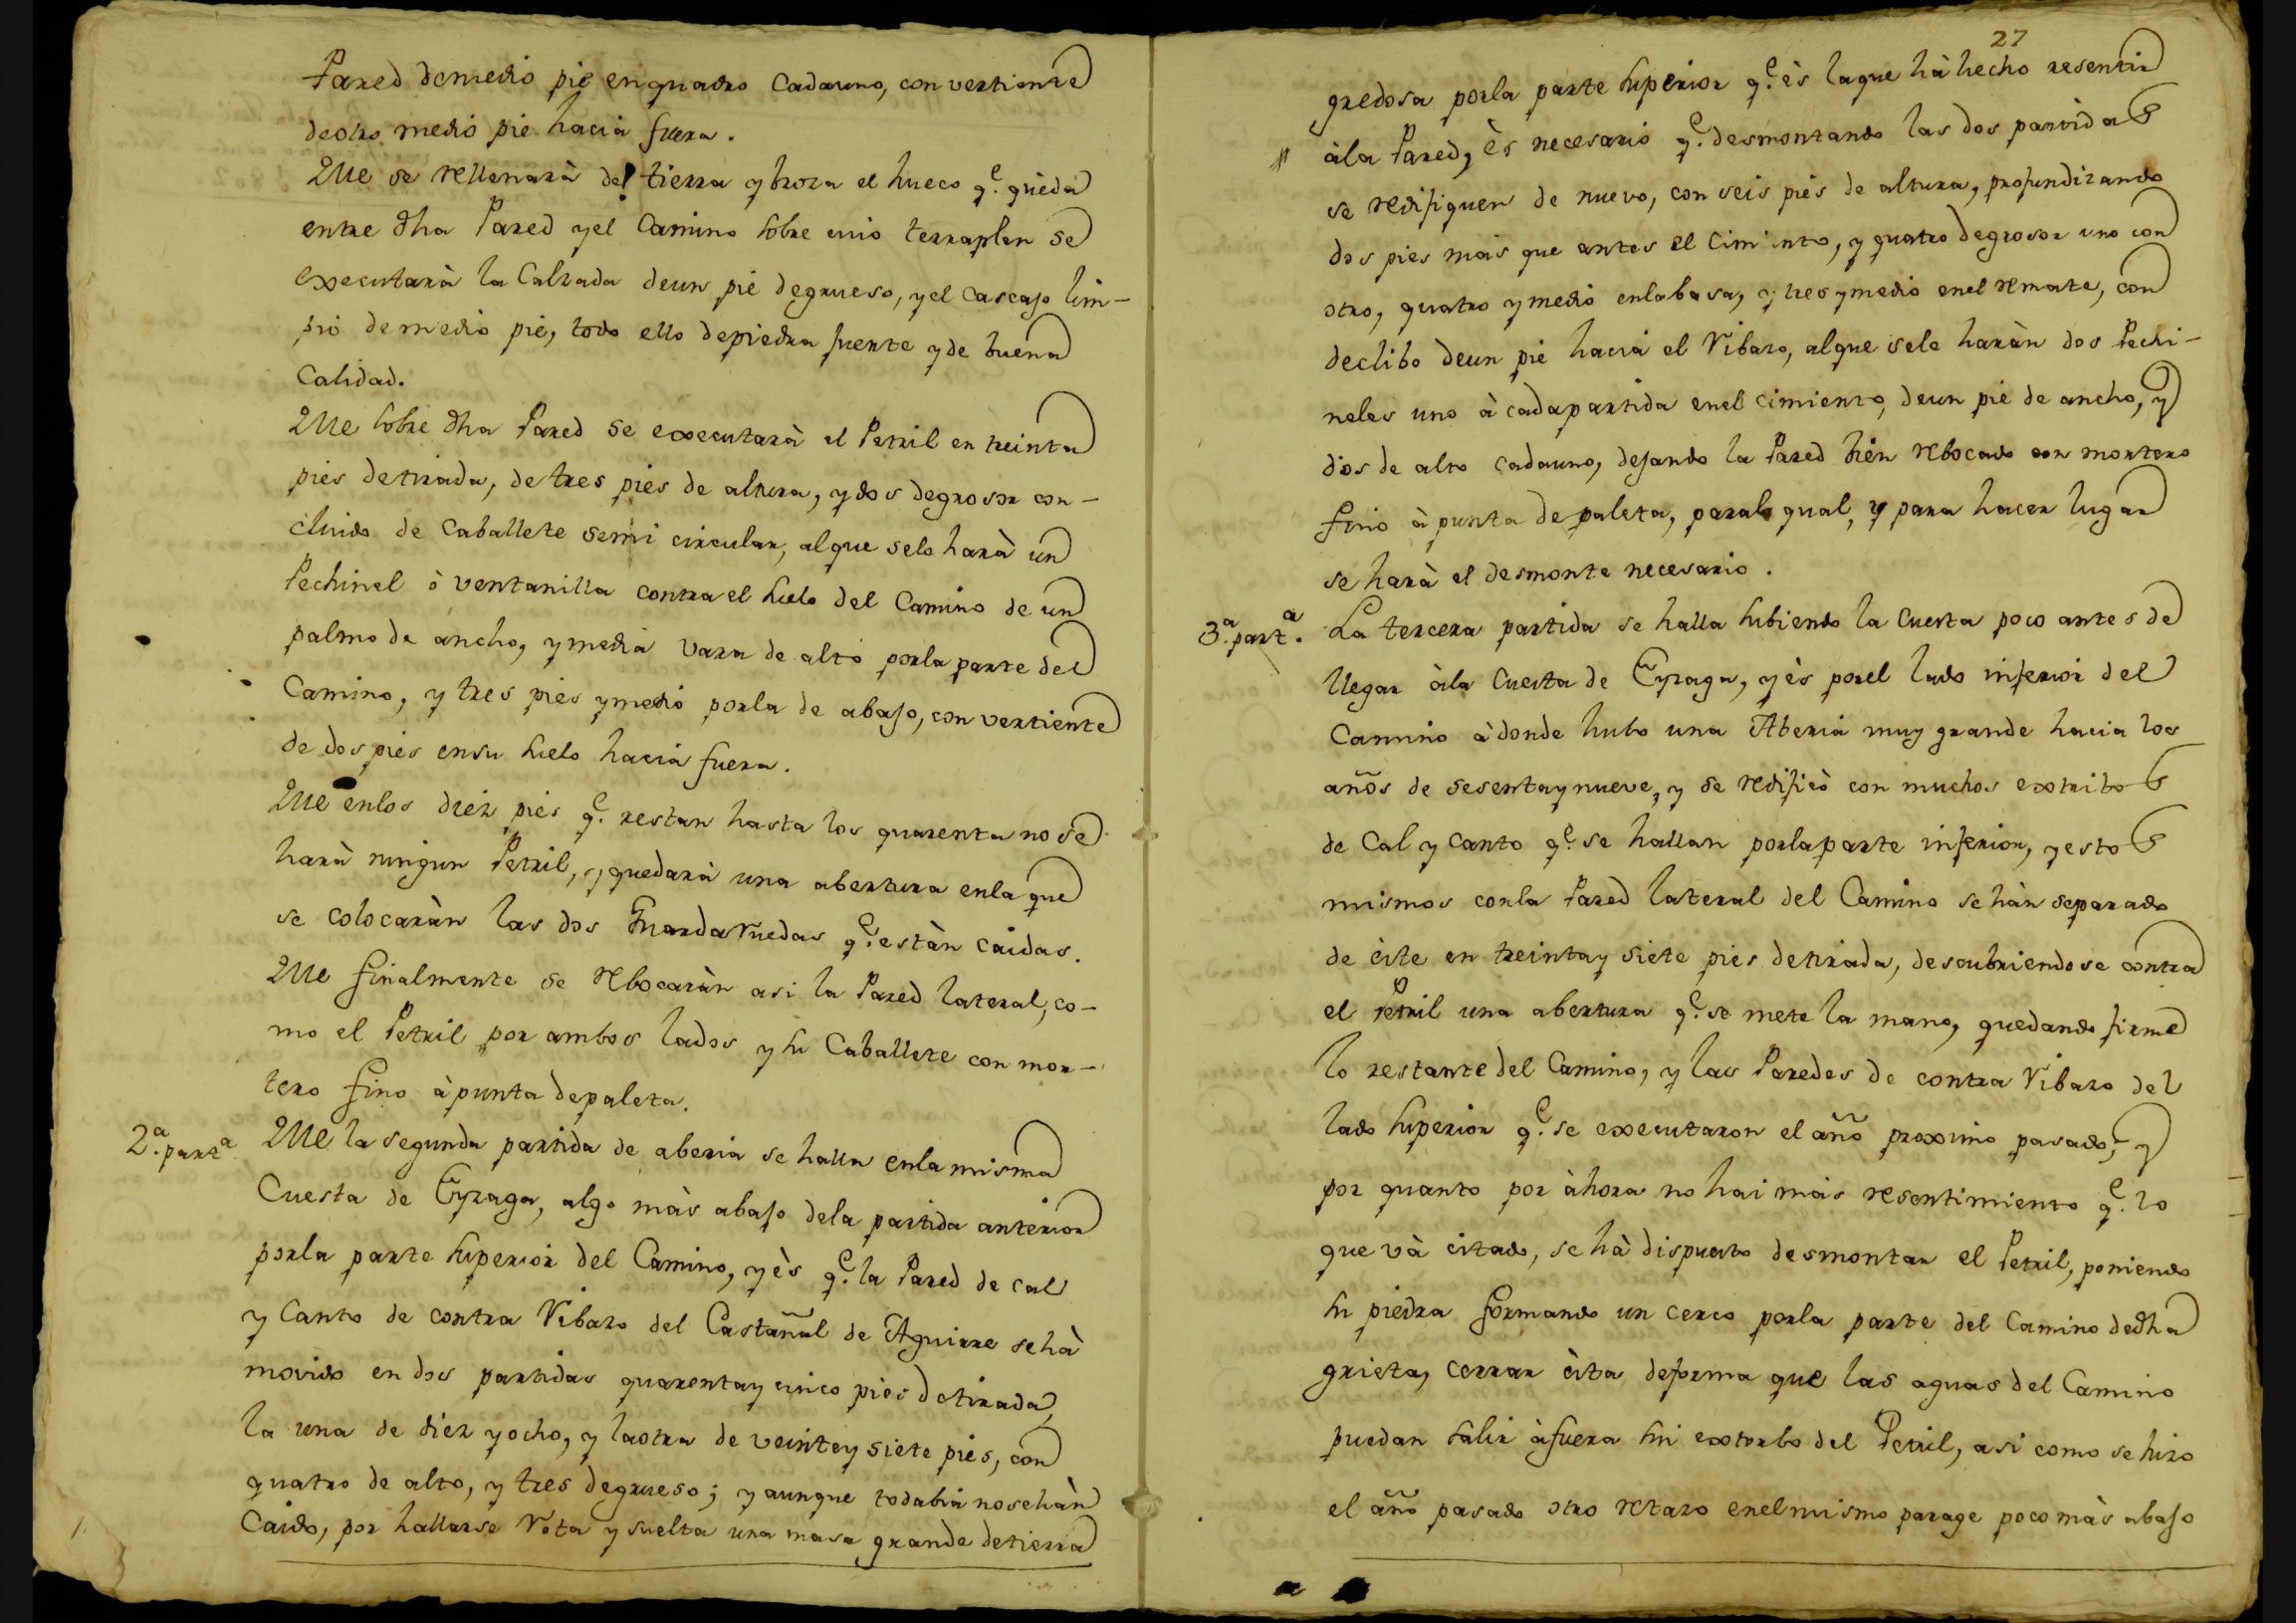 Pared demedio pie enquadro cadauno, con vertiente
deotro medio pie hacia fuera.
Que se rellenarà de tierra y broza el hueco q.e queda
entre dha Pared yel Camino sobre cuio terraplen se
executarà la Calzada deun pie degrueso, yel cascajo lim-
pio demedio pie, todo ello depiedra fuerte y de buena
Calidad.
Que sobre dha Pared se executarà el Petril en treinta
pies detirada, de tres pies de altura, y dos degrosor con-
cluido de Caballete semi circular, alque sele harà un
Pechinel ò ventanilla contra el suelo del Camino de un
palmo de ancho, y media vara de alto porla parte del
Camino, y tres pies ymedio porla de abajo, con vertiente
de dos pies ensu suelo hacia fuera.
Que enlos diez pies q.e restan hasta los quarenta no se
harà ningun Petril, y quedarà una abertura enla que
se colocaràn las dos Guardaruedas q.e estàn caidas.
Que finalmente se rebocaràn asi la Pared lateral, co-
mo el Petril por ambos lados y su Caballete con mor-
tero fino à punta depaleta.
2.a part.a Que la segunda partida de aberia se halla enla misma
Cuesta de Eyzaga, algo màs abajo dela partida anterior
porla parte superior del Camino, y ès q.e la Pared de cal
y Canto de contra Ribazo del Castañal de Aguirre se hà
movido en dos partidas quarentay cinco pies detirada,
la una de diez y ocho, y laotra de veintey siete pies, con
quatro de alto, y tres degrueso; y aunque todabia nosehàn
Caido, por hallarse Rota y suelta una masa grande detierra
27
gredosa porla parte superior q.e ès laque hà hecho resentir
àla Pared, ès necesario q.e desmontando las dos partidas
se redifiquen de nuevo, con seis pies de altura, profundizando
dos pies mas que antes el Cimiento, y quatro degrosor uno con
otro, quatro ymedio enlabasa, y tres ymedio enel remate, con
declibo deun pie hacia el Ribazo, alque sele haràn dos Pechi-
neles uno à cadapartida enel cimiento, deun pie de ancho, y
dos de alto cadauno, dejando la Pared bien rebocado con mortero
fino à punta de paleta, paralo qual, y para hacer lugar
se harà el desmonte necesario.
3.a part.a La tercera partida se halla subiendo la Cuesta poco antes de
llegar àla Cuesta de Eyzaga, y ès porel lado inferior del
Camino à donde hubo una Aberia muy grande hacia los
años de sesentaynueve, y se redificò con muchos extribos
de Cal y Canto q.e se hallan porlaparte inferior, y estos
mismos conla Pared lateral del Camino se hàn separado
de èste en treintay siete pies detirada, descubriendose contra
el Petril una abertura q.e se mete la mano, quedando firme
lo restante del Camino, y las Paredes de contra Ribazo del
lado superior q.e se executaron el año proximo pasado; y
por quanto por àhora no hai mas resentimiento q.e lo
que và citado, se hà dispuesto desmontar el Petril, poniendo
su piedra formando un cerco porla parte del Camino dedha
grieta, cerrar èsta deforma que las aguas del Camino
puedan salir àfuera sin extorbo del Petril, asi como se hizo
el año pasado otro retazo enelmismo parage poco màs abajo